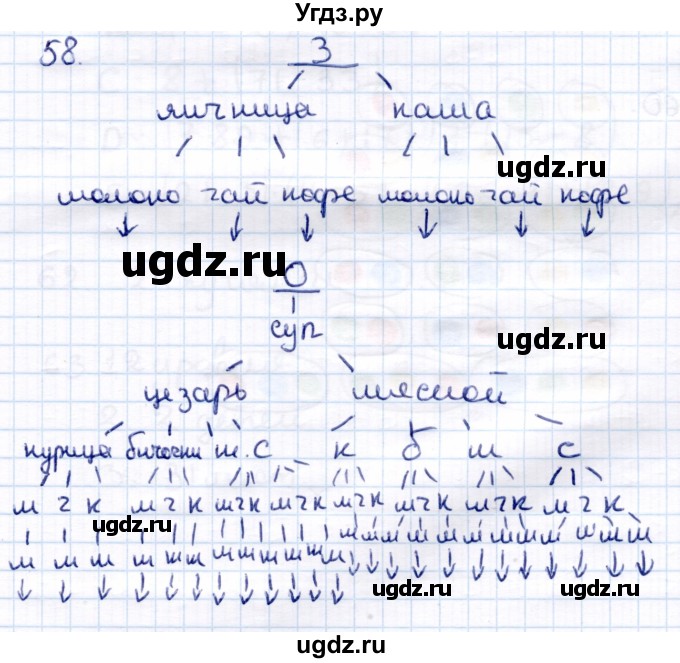 Угдз.ру
58. З
яичница каша
ugdz.ru
молоко чай кофе молоко чай кофе
ugdz.ru
О
суп
ugdz.ru
цезарь мясной
курица биточки ш. С к б ш с
м ч к м ч к м ч к м ч к м ч к м ч к м ч к м ч к
ugdz.ru
ugdz.ru
ugdz.ru